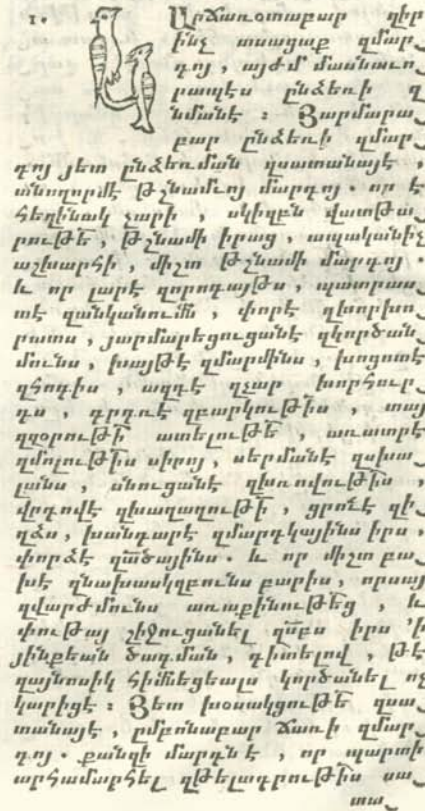 1. Արճառօտաբար զիր
ինչ ասացաք զմար
դոյ, այժմ մասնաւո
րապէս ընձեռի զ
նմանէ ։ Յարմարա
բար ընձեռի զմար
դոյ յետ ընձեռման զսատանայէ,
անողորմէ թշնամւոյ մարդոյ. որ է
հեղինակ չարի, սկիզբն վատթա
րութե, թշնամի իրաց, ապականիչ
աշխարհի, միշտ թշնամի մարդոյ.
և որ լարէ զորոգայթս, պատրաս
տէ զանկանումն, փորէ զխորխո
րատս, յարմարեցուցանէ զկործան
մունս, խայթէ զմարմինս, խոցոտէ
զհոգիս, ազդէ զչար խորհուր
դս, գրգռէ զբարկութիս, տայ
զզօրութի ատելութե, առատրէ
զմոլութիս սիրոյ, սերմանէ զսխա
լանս, սնուցանէ զխռովութիս,
վրդովէ զխաղաղութի, ցրոնէ զի
զձս, խանդարէ զմարդկայինս իրս,
փորձէ զածայինս. և որ միշտ բա
խէ զնախասկզբունս բարիս, որսայ
զվարժմունս առաքինութեց, և
փութայ շիջուցանել զսբս իրս 'ի
յինքեան ծագման, գիտելով, թէ
զայնոսիկ հիմնեցեալս կործանել ոչ
կարիցէ ։ Յետ խօսակցութե զսա
տանայէ, ըմբռնաբար ճառի զմար
դոյ. քանզի մարդն է, որ պարտի
արհամարհել զթելադրութիս սա
տա